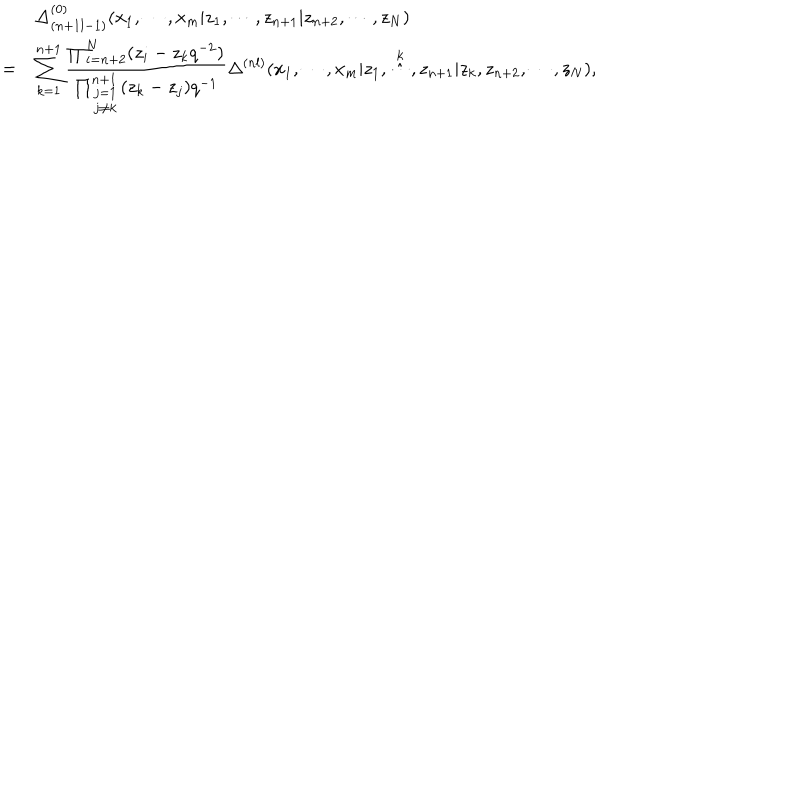 \Delta^{(0)}_{(n+1 l-1)}(x_1, \cdots, x_m | z_1, \cdots, z_{n+1} | z_{n+2}, \cdots, z_N)
= \sum_{k=1}^{n+1} \frac{\prod_{i=n+2}^{N} (z_i - z_k q^{-2})}{\prod_{\substack{j=1 \\ j \neq k}}^{n+1} (z_k - z_j) q^{-1}} \Delta^{(nl)}(x_1, \cdots, x_m | z_1, \stackrel{k}{\hat{\cdots}}, z_{n+1} | z_k, z_{n+2}, \cdots, z_N),